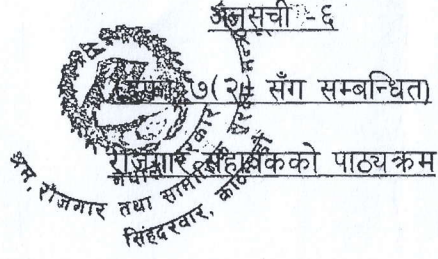 अनुसूची -६
२७(२) सँग सम्बन्धित)
रोजगार सहायकको पाठ्यक्रम
नेपाल सरकार
श्रम, रोजगार तथा सामाजिक सुरक्षा
सिंहदरवार,